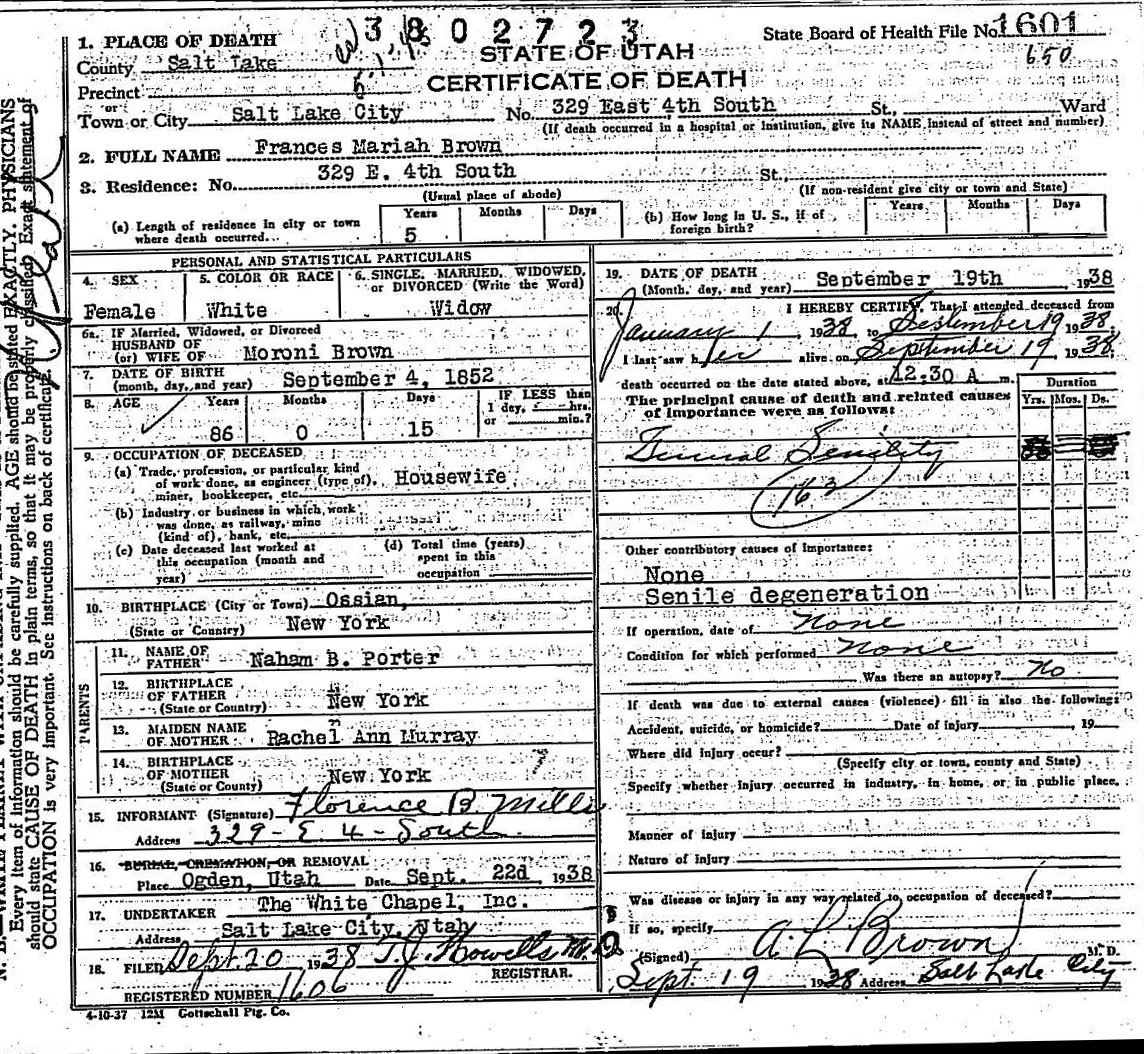 3802723
State Board of Health File No. 1601
650
STATE OF UTAH
CERTIFICATE OF DEATH
1. PLACE OF DEATH
County Salt Lake
Precinct
or
Town or City Salt Lake City No. 329 East 4th South St., Ward
(If death occurred in a hospital or institution, give its NAME instead of street and number)
2. FULL NAME Frances Mariah Brown
3. Residence: No. 329 E. 4th South St.,
(Usual place of abode) (If non-resident give city or town and State)
(a) Length of residence in city or town where death occurred... Years 5 Months Days
(b) How long in U. S., if of foreign birth? Years Months Days
PERSONAL AND STATISTICAL PARTICULARS
4. SEX Female
5. COLOR OR RACE White
6. SINGLE, MARRIED, WIDOWED, or DIVORCED (Write the Word) Widow
6a. IF Married, Widowed, or Divorced
HUSBAND OF
(or) WIFE OF Moroni Brown
7. DATE OF BIRTH
(month, day, and year) September 4, 1852
8. AGE Years 86 Months 0 Days 15
IF LESS than 1 day, hrs. or min.?
9. OCCUPATION OF DECEASED
(a) Trade, profession, or particular kind
of work done, as engineer (type of), Housewife
miner, bookkeeper, etc.
(b) Industry or business in which work
was done, as railway, mine
(kind of), bank, etc.
(c) Date deceased last worked at
this occupation (month and
year)
(d) Total time (years)
spent in this
occupation
10. BIRTHPLACE (City or Town) Ossian,
(State or Country) New York
PARENTS
11. NAME OF
FATHER Naham B. Porter
12. BIRTHPLACE
OF FATHER
(State or Country) New York
13. MAIDEN NAME
OF MOTHER Rachel Ann Murray
14. BIRTHPLACE
OF MOTHER
(State or County) New York
15. INFORMANT (Signature) Florence B. Mills
Address 329 - E 4 - South
16. BURIAL, CREMATION, OR REMOVAL
Place Ogden, Utah Date Sept. 22d, 1938
17. UNDERTAKER The White Chapel, Inc.
Address Salt Lake City, Utah
18. FILED Sept. 20 1938 T. J. Howells M. D.
REGISTRAR.
REGISTERED NUMBER 1606
4-10-37 12M Gottschall Ptg. Co.
19. DATE OF DEATH
(Month, day, and year) September 19th 1938
20. I HEREBY CERTIFY, That I attended deceased from
January 1 1938 to September 19 1938
I last saw her alive on September 19 1938
death occurred on the date stated above, at 12.30 A m.
The principal cause of death and related causes
of importance were as follows:
Duration
Yrs. Mos. Ds.
Senility
162
Other contributory causes of importance:
None
Senile degeneration
If operation, date of None
Condition for which performed None
Was there an autopsy? No
If death was due to external causes (violence) fill in also the following:
Accident, suicide, or homicide? Date of injury 19
Where did injury occur?
(Specify city or town, county and State)
Specify whether injury occurred in industry, in home, or in public place.
Manner of injury
Nature of injury
Was disease or injury in any way related to occupation of deceased?
If so, specify
(Signed) A L Brown M. D.
Sept. 19 1938 Address Salt Lake City
Every item of information should be carefully supplied. AGE should be stated EXACTLY. PHYSICIANS
should state CAUSE OF DEATH in plain terms, so that it may be properly classified. Exact statement of
OCCUPATION is very important. See instructions on back of certificate.